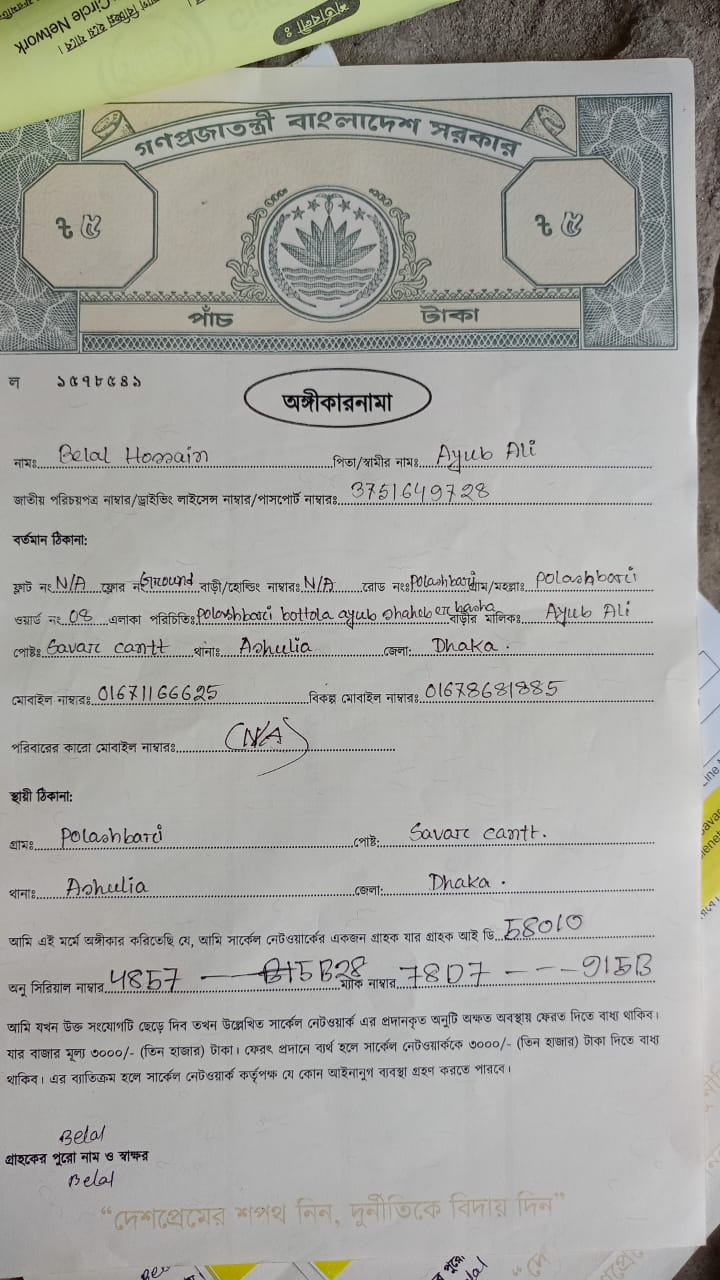 Circle Network
শর্তাবলী ঃ
গণপ্রজাতন্ত্রী বাংলাদেশ সরকার
৳ ৫ ৳ ৫
পাঁচ টাকা
ল ১৫৭৮৫৪১
অঙ্গীকারনামা
নামঃ Belal Hossain পিতা/স্বামীর নামঃ Ayub Ali
জাতীয় পরিচয়পত্র নাম্বার/ড্রাইভিং লাইসেন্স নাম্বার/পাসপোর্ট নাম্বারঃ 3751649728
বর্তমান ঠিকানা:
ফ্লাট নং N/A ফ্লোর নং Ground বাড়ী/হোল্ডিং নাম্বারঃ N/A রোড নংঃ Polashbari গ্রাম/মহল্লাঃ Polashbari
ওয়ার্ড নং 08 এলাকা পরিচিতিঃ Polashbari bottola ayub shaheb er basha বাড়ীর মালিকঃ Ayub Ali
পোষ্টঃ Savar cantt থানাঃ Ashulia জেলা: Dhaka.
মোবাইল নাম্বারঃ 01671166625 বিকল্প মোবাইল নাম্বারঃ 01678681885
পরিবারের কারো মোবাইল নাম্বারঃ (N/A)
স্থায়ী ঠিকানা:
গ্রামঃ Polashbari পোষ্ট: Savar cantt.
থানাঃ Ashulia জেলা: Dhaka.
আমি এই মর্মে অঙ্গীকার করিতেছি যে, আমি সার্কেল নেটওয়ার্কের একজন গ্রাহক যার গ্রাহক আই ডি 58010
অনু সিরিয়াল নাম্বার 4857 5B28 ম্যাক নাম্বার 78D7 ---915B
আমি যখন উক্ত সংযোগটি ছেড়ে দিব তখন উল্লেখিত সার্কেল নেটওয়ার্ক এর প্রদানকৃত অনুটি অক্ষত অবস্থায় ফেরত দিতে বাধ্য থাকিব।
যার বাজার মূল্য ৩০০০/- (তিন হাজার) টাকা। ফেরৎ প্রদানে ব্যর্থ হলে সার্কেল নেটওয়ার্ককে ৩০০০/- (তিন হাজার) টাকা দিতে বাধ্য
থাকিব। এর ব্যতিক্রম হলে সার্কেল নেটওয়ার্ক কর্তৃপক্ষ যে কোন আইনানুগ ব্যবস্থা গ্রহণ করতে পারবে।
Belal
গ্রাহকের পুরো নাম ও স্বাক্ষর
Belal
“দেশপ্রেমের শপথ নিন, দুর্নীতিকে বিদায় দিন”